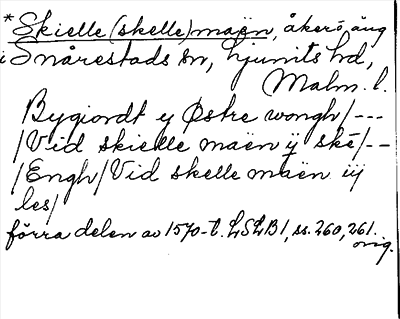 * Skielle (skelle) maën, åker o. äng
i Snårestads sn, Ljunits hd,
Malm. l.
Bygiordt y Østre wongh/---
/Vid skielle maën ÿ ske/--
/Engh/Vid skelle maën iij
les/
förra delen av 1570-t. LSLB1, ss. 260, 261.
orig.